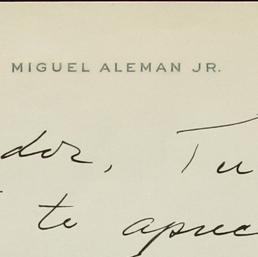 MIGUEL ALEMAN JR.
dor, Tu
te aprec